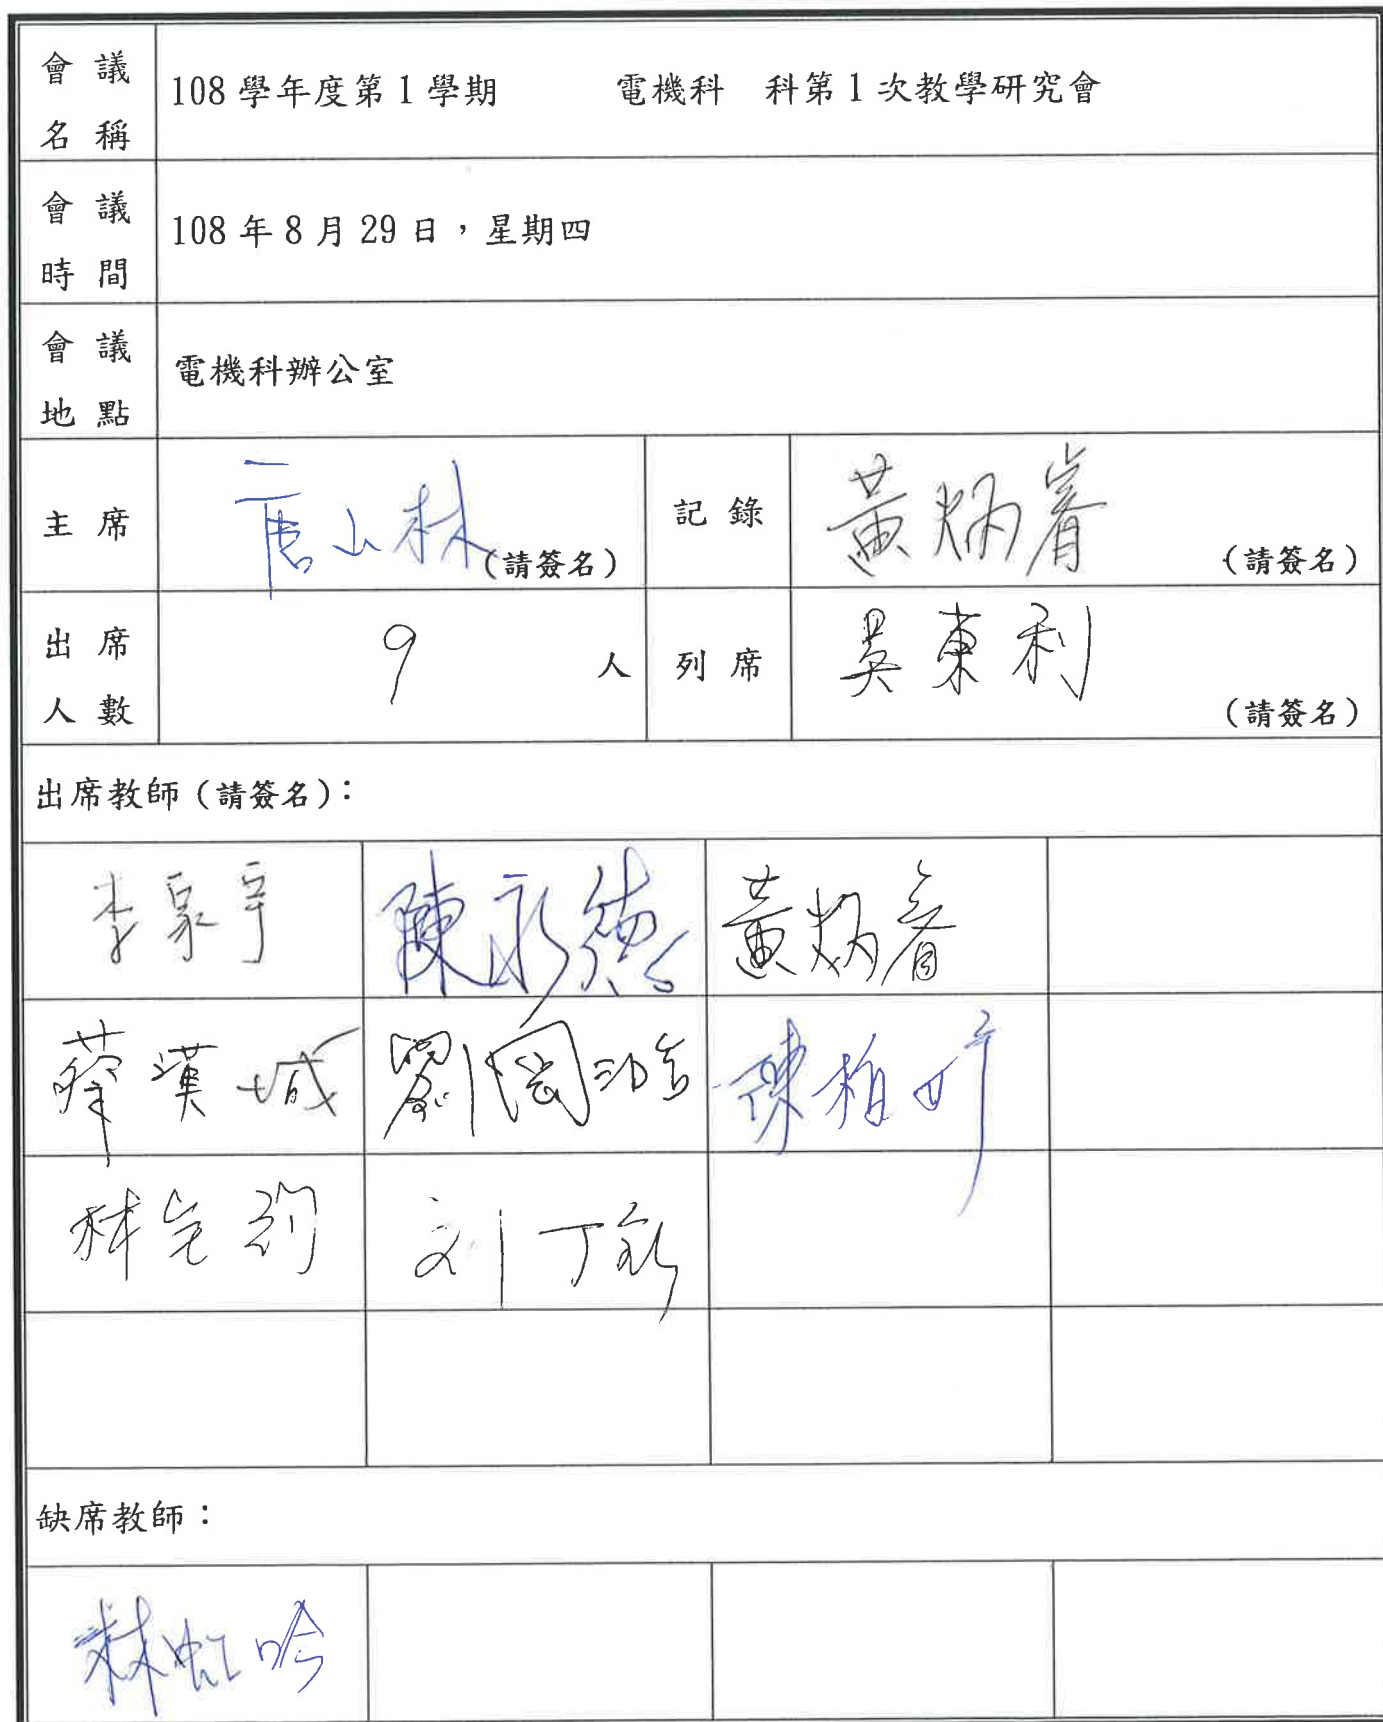 會議名稱
108學年度第1學期 電機科 科第1次教學研究會
會議時間
108年8月29日，星期四
會議地點
電機科辦公室
主席
唐山林(請簽名)
記錄
黃炳睿
(請簽名)
出席人數
9 人
列席
吳東利
(請簽名)
出席教師(請簽名)：
李泉宇 陳永德 黃炳睿
蔡漢城 劉國 陳柏
林 刘丁
缺席教師：
林虹吟